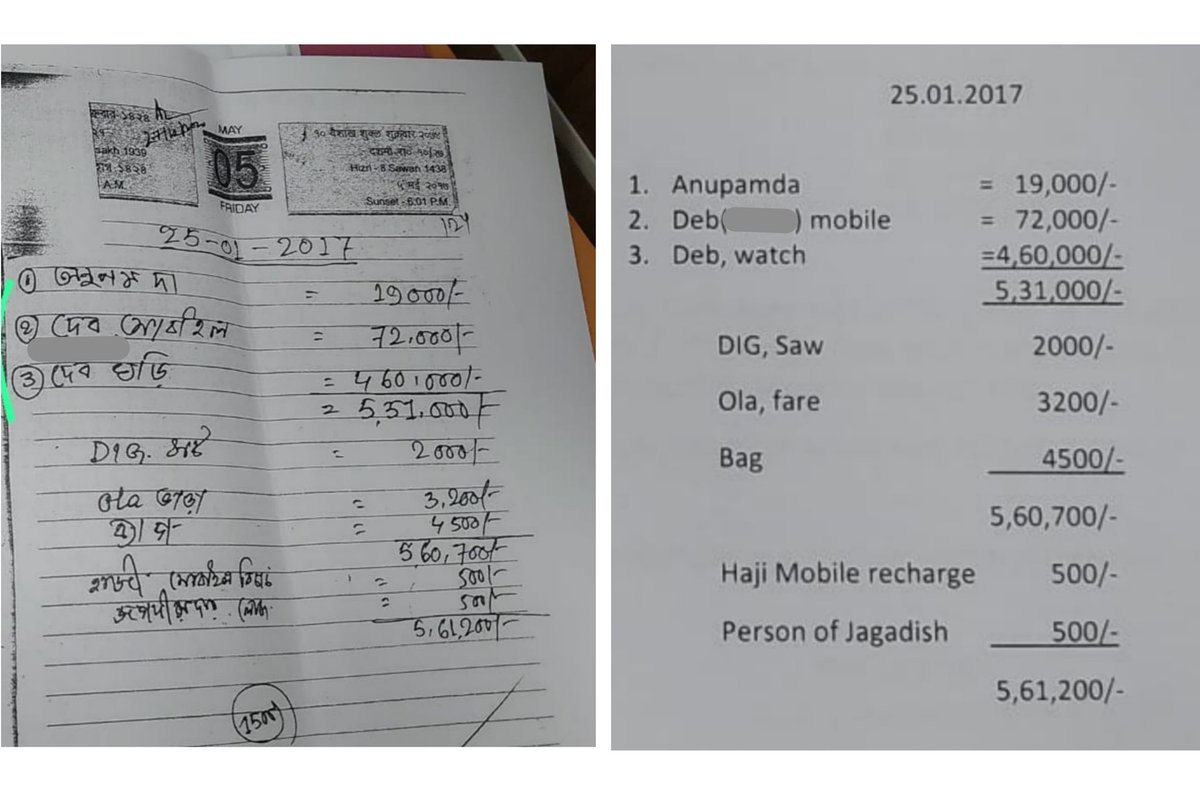 sakh 1939
A.M.
MAY
05
FRIDAY
Hizri - 8 Sawan 1438
Sunset - 6:01 P.M.
25-01-2017
① অনুপম দা = 19000/-
② দেব মোবাইল = 72,000/-
③ দেব ঘড়ি = 460,000/-
= 5,51,000/-
DIG. = 2000/-
Ola ভাড়া = 3,200/-
ব্যাগ = 4500/-
5,60,700/-
হাজী মোবাইল = 500/-
লোক = 500/-
5,61,200/-
1500
25.01.2017
1. Anupamda = 19,000/-
2. Deb( ) mobile = 72,000/-
3. Deb, watch =4,60,000/-
5,31,000/-
DIG, Saw 2000/-
Ola, fare 3200/-
Bag 4500/-
5,60,700/-
Haji Mobile recharge 500/-
Person of Jagadish 500/-
5,61,200/-